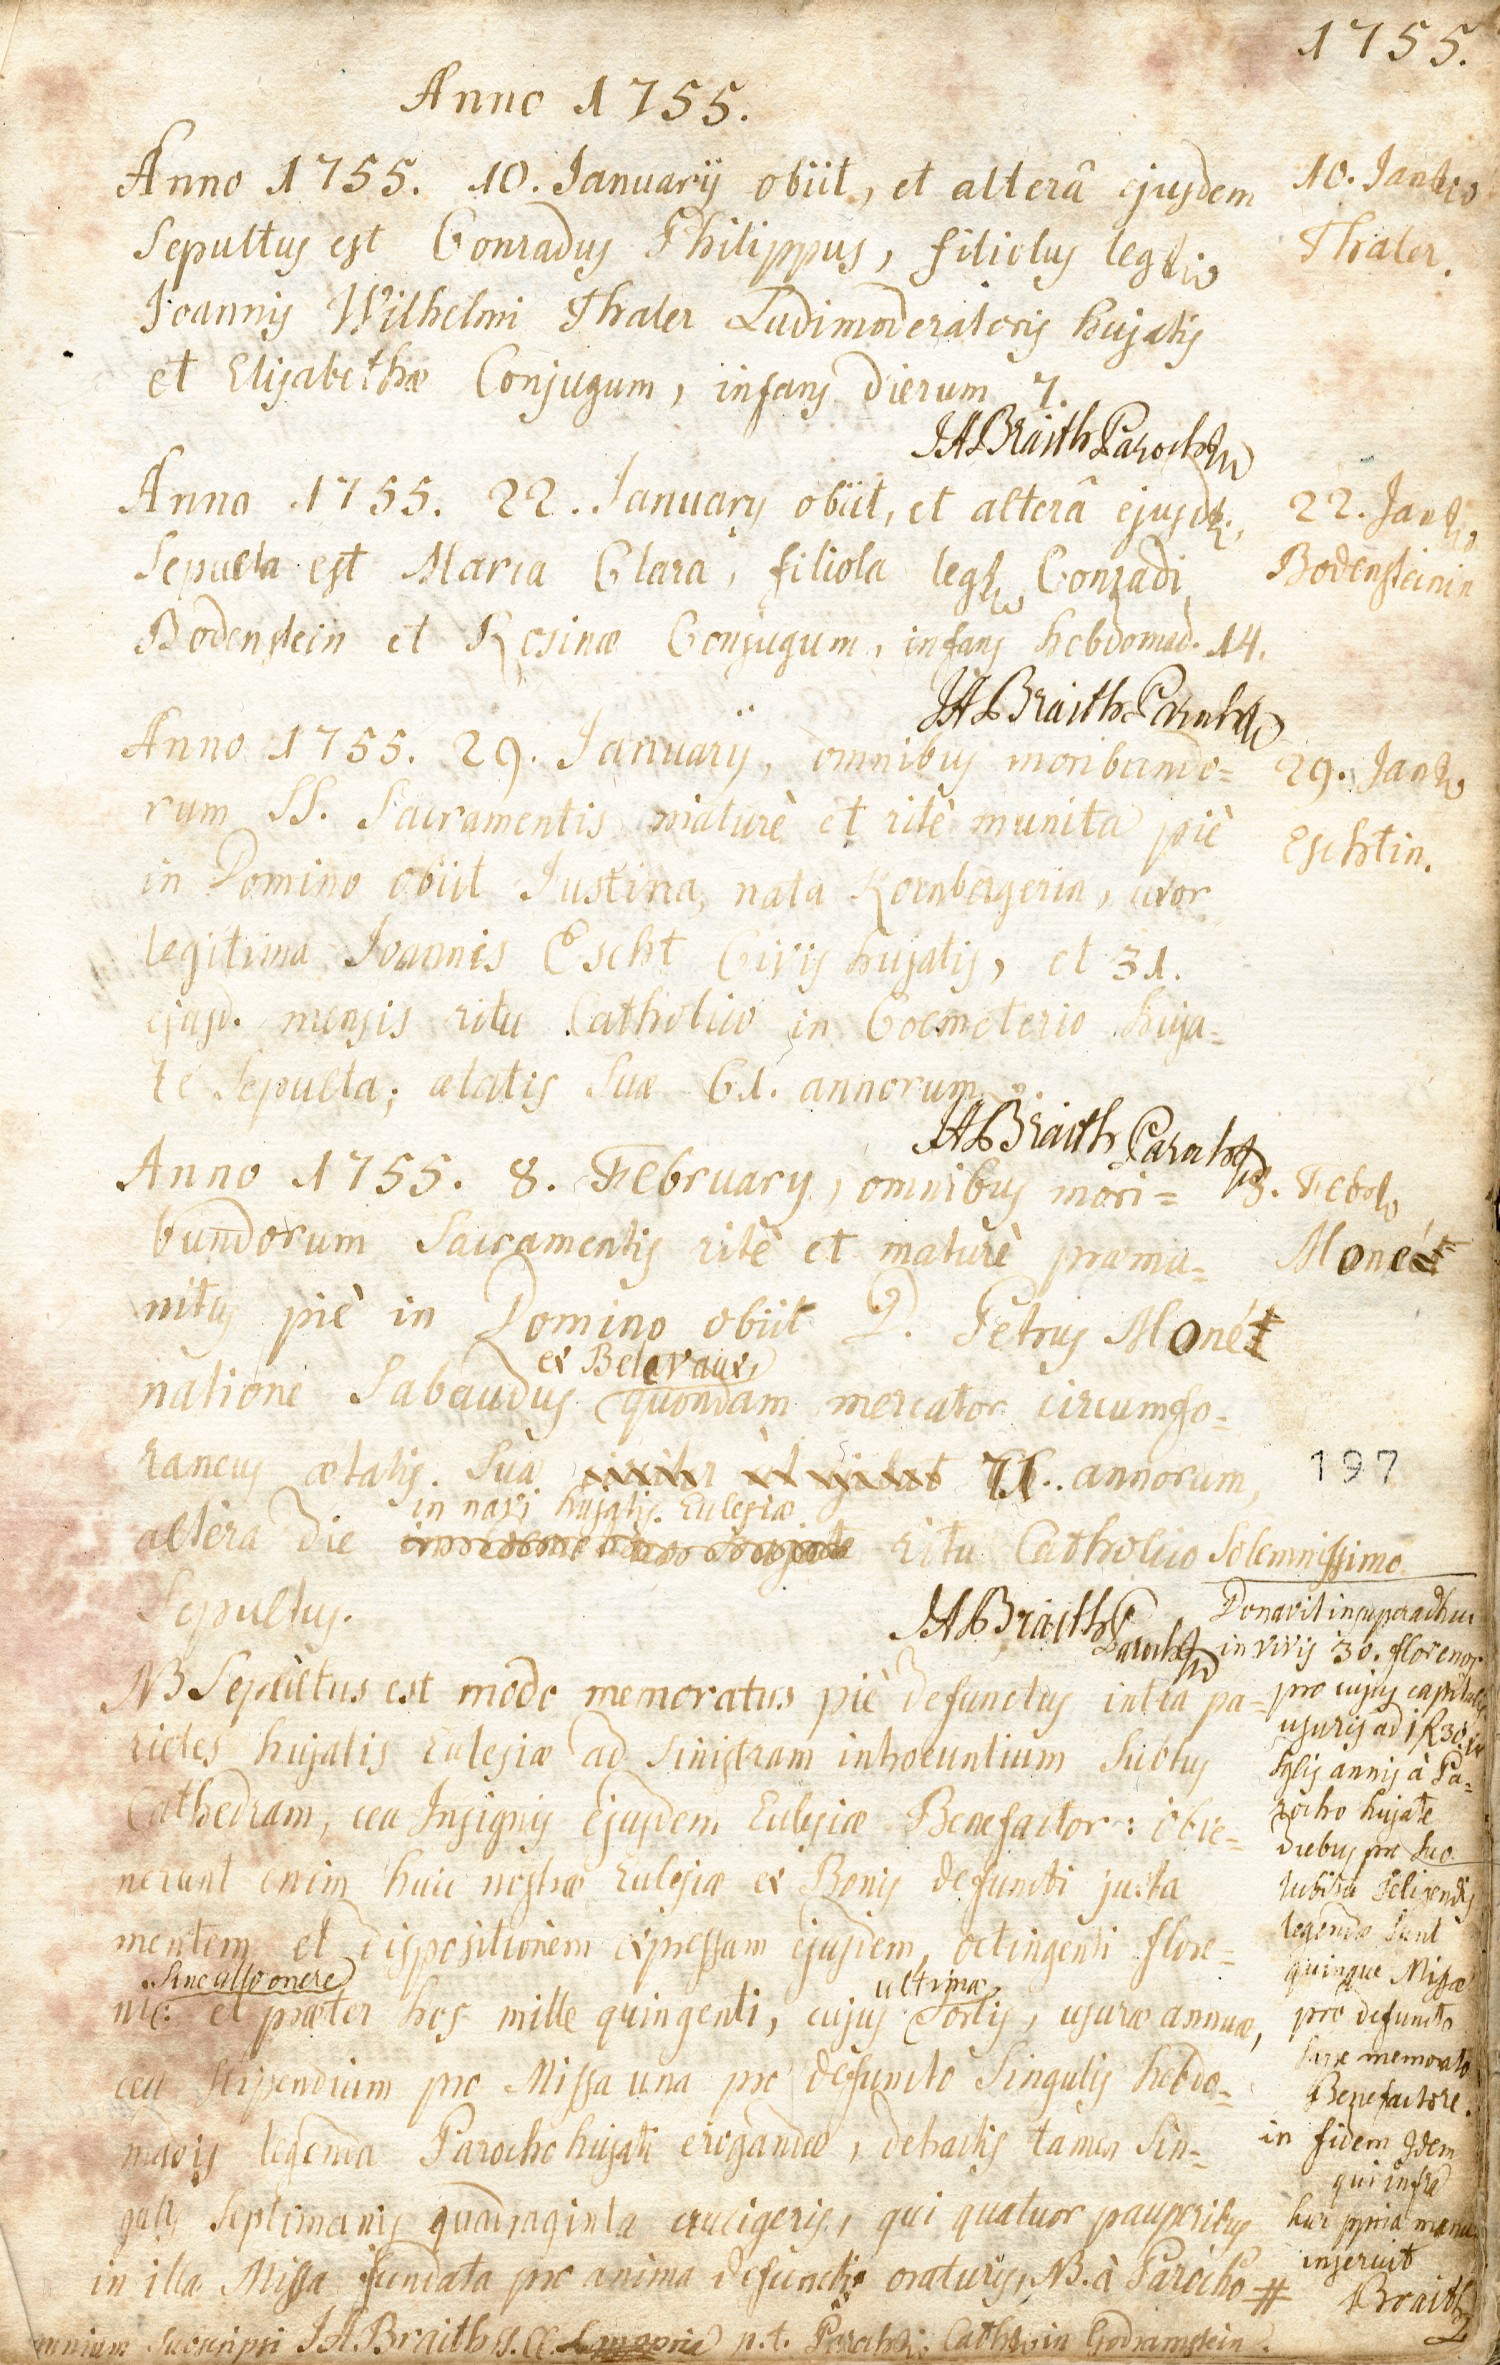 1755.
Anno 1755.
Anno 1755. 10. Januarÿ obiit, et alterâ ejusdem
Sepultus est Conradus Philippus, filiolus leg
Joannis Wilhelmi Thaler Ludimoderatoris hujatis
et Elisabethæ Conjugum, infans dierum 7.
JABraith Paroch
10. Jan
Thaler.
Anno 1755. 22. January obiit, et alterâ ejusd.
Sepulta est Maria Clara, filiola leg Conradi
Bodenstein et Rosinæ Conjugum, infans hebdomad. 14.
JABraith Paroch
22. Jan
Bodensteinin
Anno 1755. 29. Januarÿ, omnibus moribundo=
rum SS. Sacramentis maturè et ritè munita piè
in Domino obiit Justina, nata Kornbergerin, uxor
legitima Joannis Escht Civis hujatis, et 31.
ejusd. mensis ritu Catholico in Coemeterio huja=
te Sepulta; ætatis Suæ 61. annorum.
JABraith Paroch
29. Jan
Eschtin.
Anno 1755. 8. February, omnibus mori=
bundorum Sacramentis ritè et maturè præmu=
nitus piè in Domino obiit D. Petrus Moné
ex Belevaux
natione Sabaudus quondam mercator circumfo=
raneus ætatis Suæ 71. annorum,
in navi hujatis Eclesiæ
altera die ritu Catholico Solemnissimo
Sepultus.
JABraith Paroch
8. Feb
Moné
197
NB Sepultus est modo memoratus piè defunctus intra pa=
rietes hujatis Eclesiæ ad Sinistram introeuntium Subtus
Cathedram, ceu Insignis ejusdem Eclesiæ Benefactor: obve=
nerunt enim huic nostræ Eclesiæ ex Bonis defuncti juxta
mentem et dispositionem expressam ejusdem, octingenti flore=
Sine ullo onere
ni: et præter hos mille quingenti, cujus ultimæ Sortis, usuræ annuæ,
ceu Stipendium pro Missa una pro defuncto Singulis hebdo=
madis legenda Parocho hujati erogandæ, detractis tamen Sin=
gulis Septimanis quadraginta crucigeris, qui quatuor pauperibus
in illa Missa fundata pro anima defuncti oraturis, NB. à Parocho #
Subscripsi JABraith n.t. Paroch Cath in Godramstein.
Donavit insuper adhuc
in vivis 30. florenor
pro cujus capitalis
usuris ad 1 R 30
Sglis annis à Pa=
rocho hujate
diebus pro Suo
lubitu Seligendis
legendæ Sunt
quinque Missæ
pro defuncto
Sæpe memorato
Benefactore.
in fidem Idem
qui infra
hæc ppria manu
inseruit
Braith